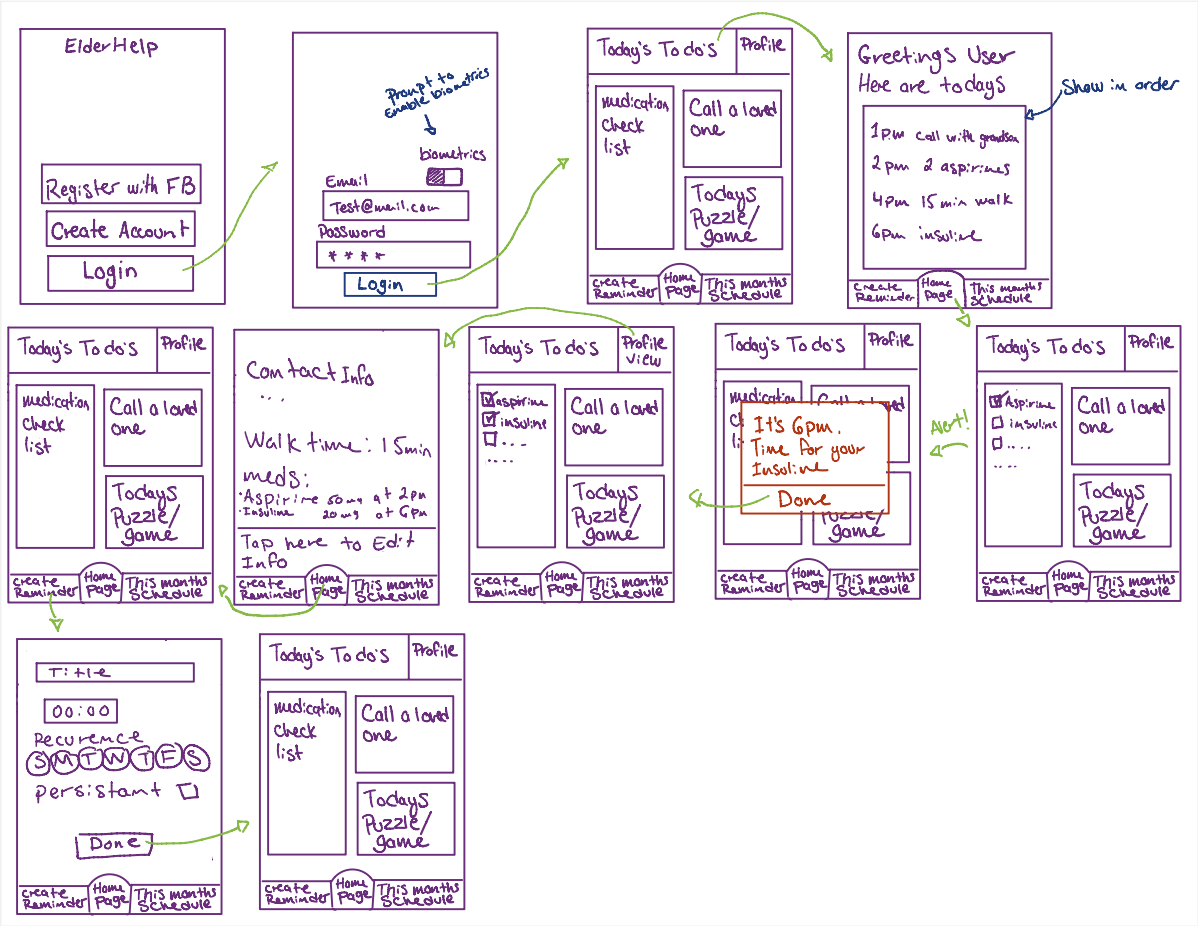 ElderHelp
Register with FB
Create Account
Login
Prompt to
Enable biometrics
biometrics
Email
Test@mail.com
Password
****
Login
Today's To do's
Profile
medication
check
list
Call a loved
one
Todays
Puzzle/
game
create
Reminder
Home
Page
This months
Schedule
Greetings User
Here are todays
Show in order
1pm call with grandson
2pm 2 aspirines
4pm 15 min walk
6pm insuline
create
Reminder
Home
Page
This months
Schedule
Today's To do's
Profile
medication
check
list
Call a loved
one
Todays
Puzzle/
game
create
Reminder
Home
Page
This months
Schedule
Contact Info
...
Walk time: 15min
meds:
·Aspirine 50mg at 2pm
·Insuline 20mg at 6pm
Tap here to Edit
Info
create
Reminder
Home
Page
This months
Schedule
Today's To do's
Profile
view
aspirine
insuline
....
....
Call a loved
one
Todays
Puzzle/
game
create
Reminder
Home
Page
This months
Schedule
Today's To do's
Profile
medication
ch
li
Call a loved
It's 6pm.
Time for your
Insuline
Done
Puzzle/
game
create
Reminder
Home
Page
This months
Schedule
Alert!
Today's To do's
Profile
Aspirine
insuline
....
....
Call a loved
one
Todays
Puzzle/
game
create
Reminder
Home
Page
This months
Schedule
Title
00:00
Recurence
S M T W T F S
persistant
Done
create
Reminder
Home
Page
This months
Schedule
Today's To do's
Profile
medication
check
list
Call a loved
one
Todays
Puzzle/
game
create
Reminder
Home
Page
This months
Schedule